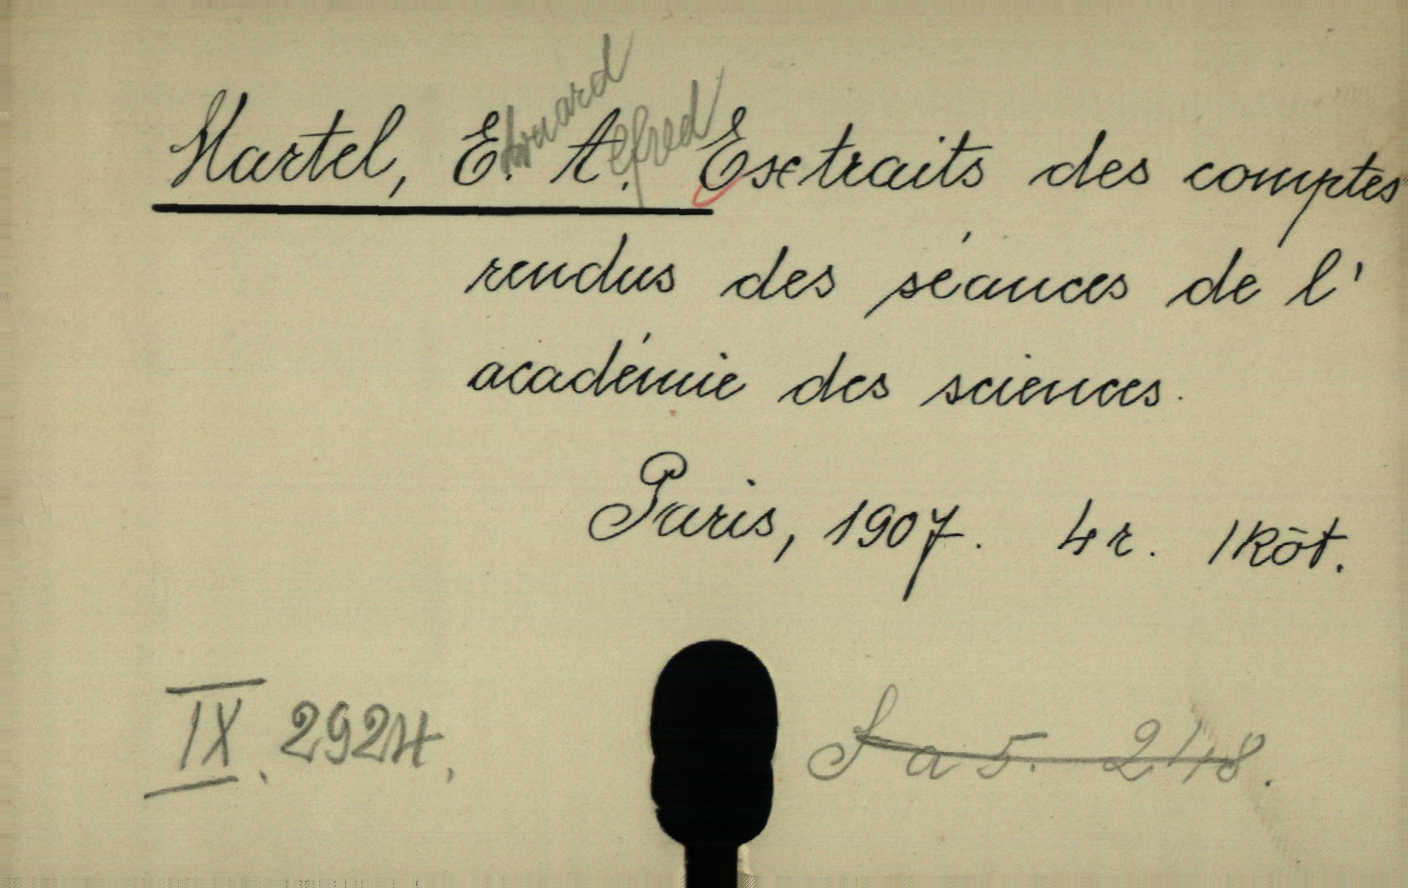 Martel, E.douard A.lfred Extraits des comptes
rendus des séances de l'
académie des sciences.
Paris, 1907. 4r. 1 köt.
IX. 2924. S a 5. 248.